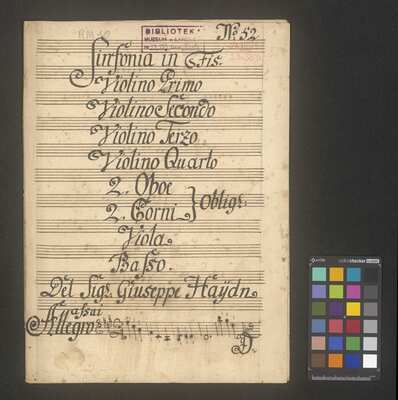 RM 40
BIBLIOTEK
No: 52.
Sinfonia in Fis:
Violino Primo
Violino Secondo
Violino Terzo
Violino Quarto
2. Oboe
2. Corni } Oblig:
Viola.
Basso.
Del Sigr. Giuseppe Haÿdn.
Allegro assai